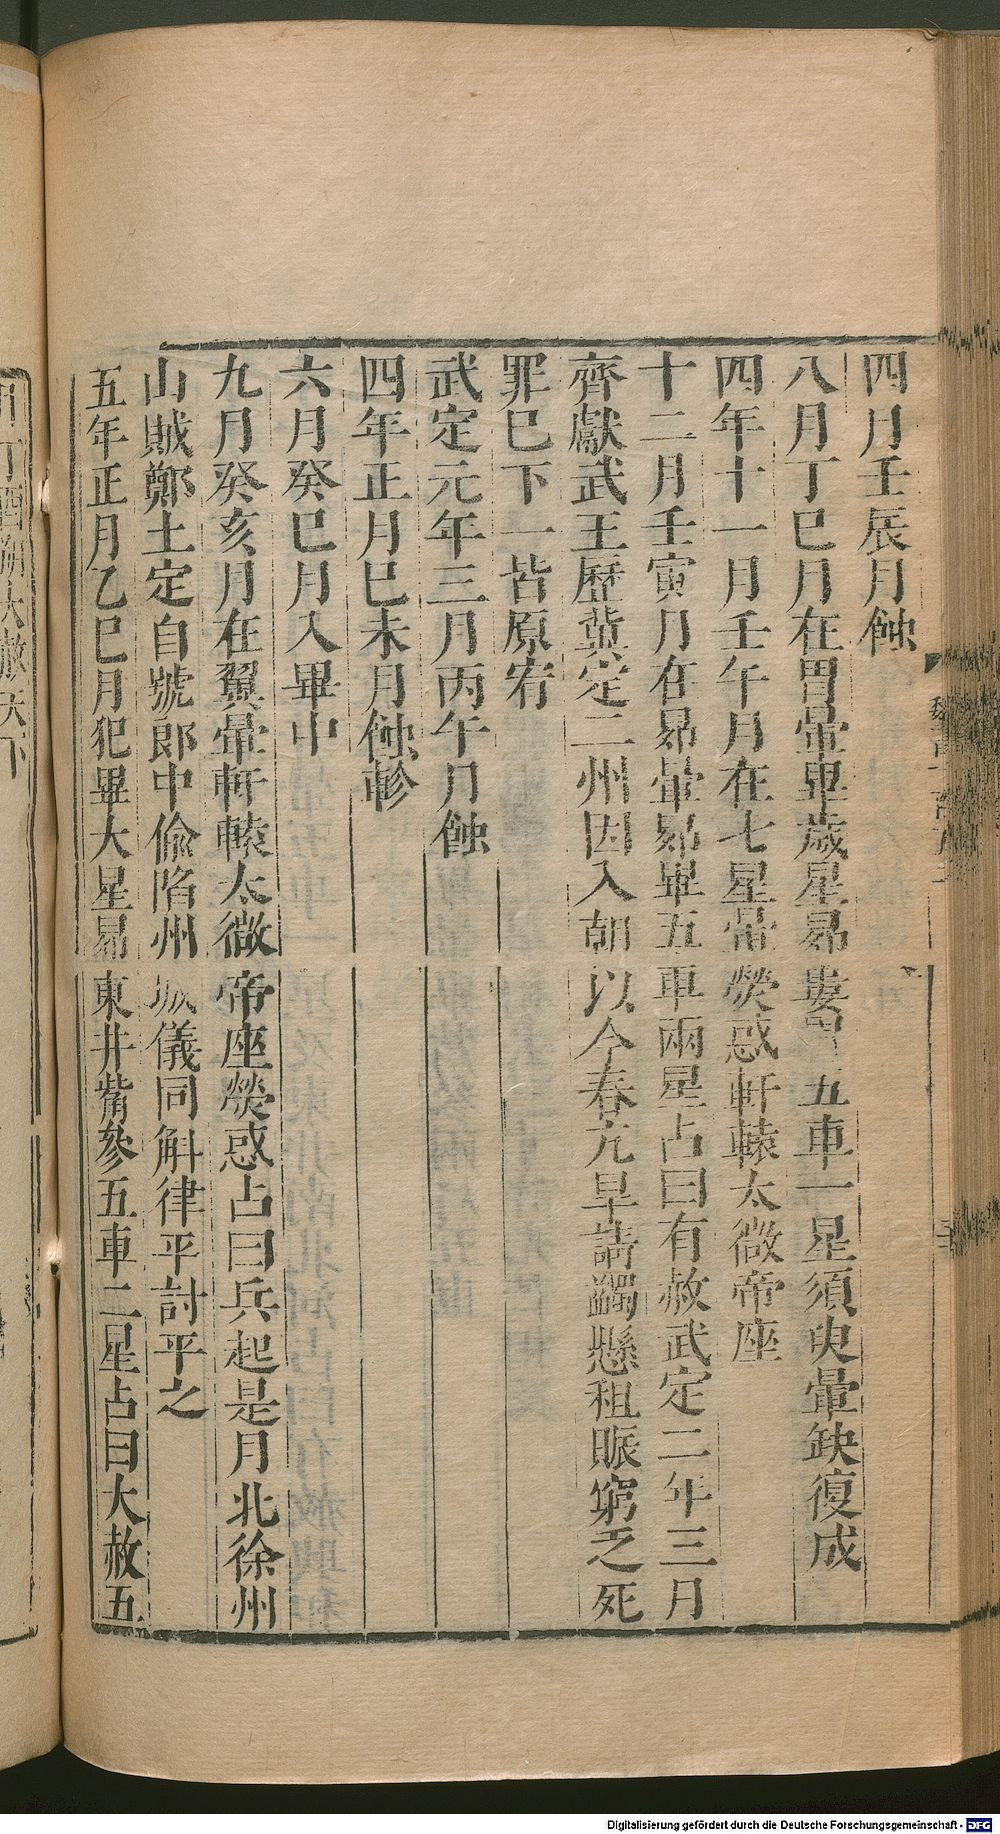 四月壬辰月蝕
八月丁巳月在胃暈畢歲星昴婁胃五車一星須臾暈缺復成
四年十一月壬午月在七星暈熒惑軒轅太微帝座
十二月壬寅月在昴暈昴畢五車兩星占曰有赦武定二年三月
齊獻武王歷冀定二州因入朝以今春亢旱請蠲懸租賑窮乏死
罪巳下一皆原宥
武定元年三月丙午月蝕
四年正月巳未月蝕軫
六月癸巳月入畢中
九月癸亥月在翼暈軒轅太微帝座熒惑占曰兵起是月北徐州
山賊鄭土定自號郎中偷陷州城儀同斛律平討平之
五年正月乙巳月犯畢大星昴東井觜參五車二星占曰大赦五
Digitalisierung gefördert durch die Deutsche Forschungsgemeinschaft - DFG